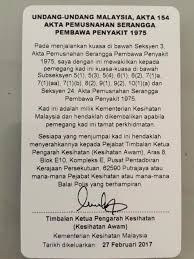 UNDANG-UNDANG MALAYSIA, AKTA 154
AKTA PEMUSNAHAN SERANGGA
PEMBAWA PENYAKIT 1975
Pada menjalankan kuasa di bawah Seksyen 3,
Akta Pemusnahan Serangga Pembawa Penyakit
1975, saya dengan ini mewakilkan kepada
pemegang kad ini kuasa-kuasa di bawah
Subseksyen 5(1), 5(3), 5(4), 6(1), 6(2), 7(1),
7(1)(aa), 7(1)(bb), 8(a), 8(b), 9(1), 10(2) dan
Seksyen 24. Akta Pemusnahan Serangga
Pembawa Penyakit 1975.
Kad ini adalah milik Kementerian Kesihatan
Malaysia dan hendaklah dikembalikan apabila
pemegang kad ini tamat perkhidmatan.
Sesiapa yang menjumpai kad ini hendaklah
menyerahkannya kepada Pejabat Timbalan Ketua
Pengarah Kesihatan (Kesihatan Awam), Aras 8,
Blok E10, Kompleks E, Pusat Pentadbiran
Kerajaan Persekutuan, 62590 Putrajaya atau
mana-mana Pejabat Kesihatan atau mana-mana
Balai Polis yang berhampiran.
Timbalan Ketua Pengarah Kesihatan
(Kesihatan Awam)
Kementerian Kesihatan Malaysia
Tarikh dikeluarkan: 27 Februari 2017